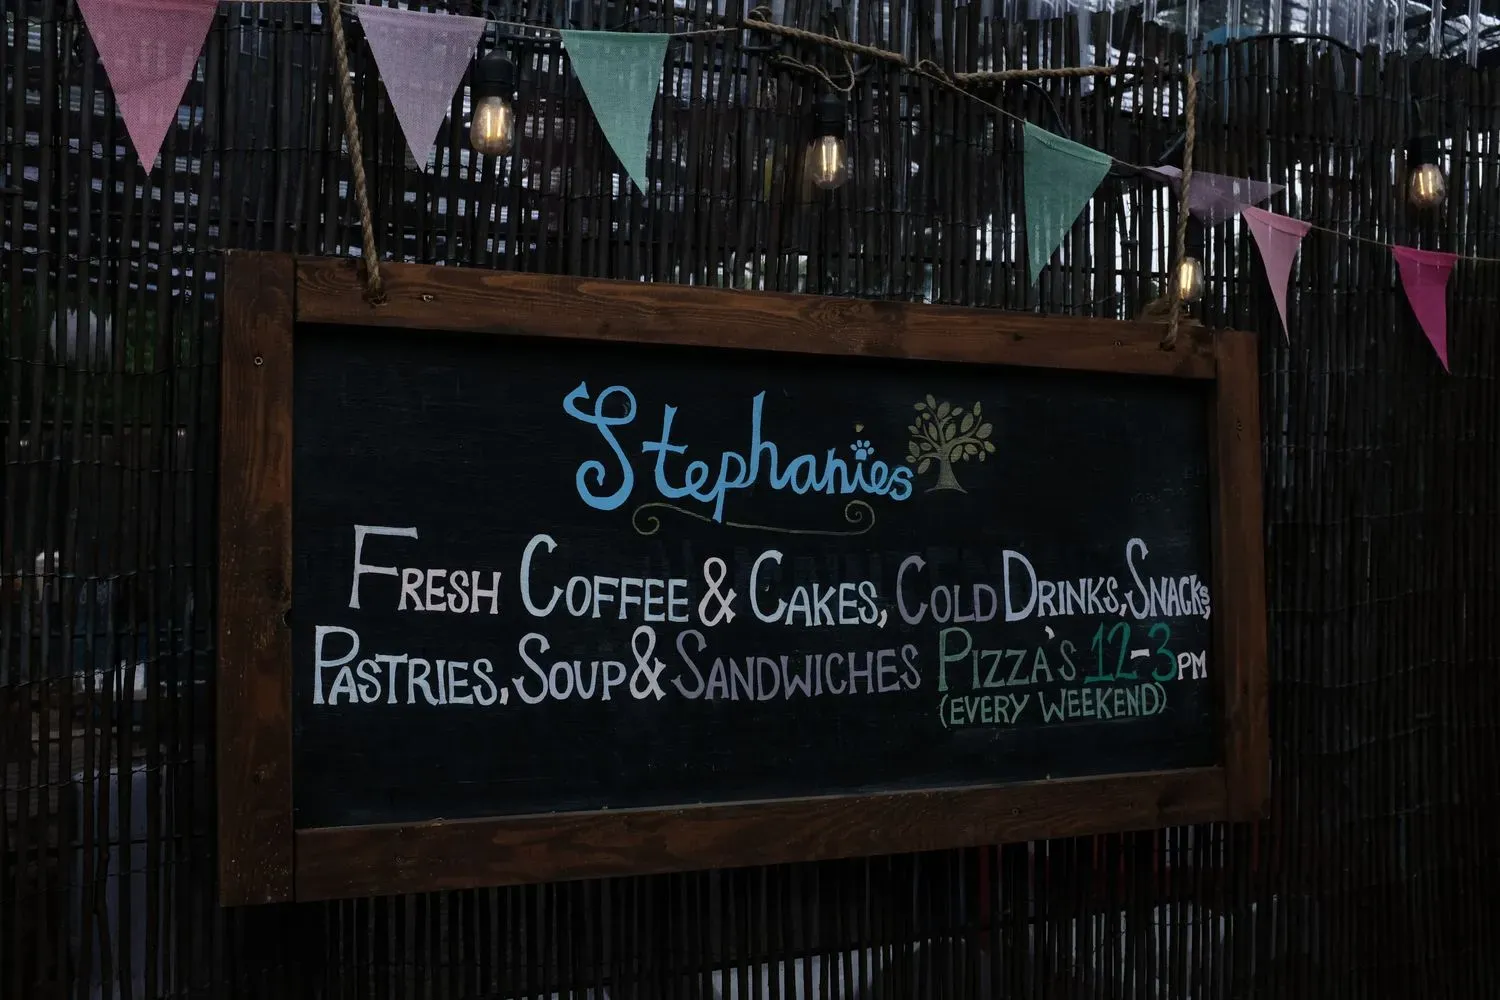 Stephanies
FRESH COFFEE & CAKES, COLD DRINKS, SNACKS,
PASTRIES, SOUP & SANDWICHES PIZZA'S 12-3PM
(EVERY WEEKEND)